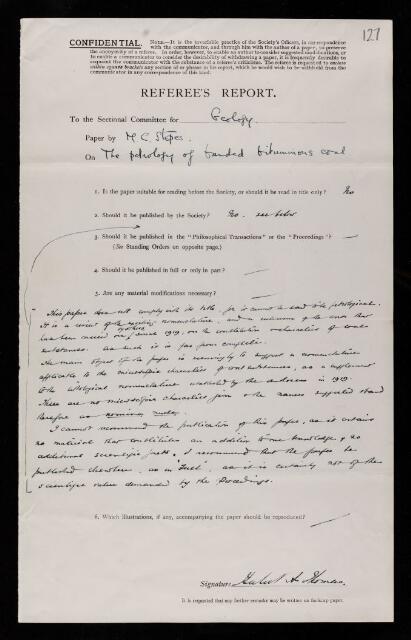 127
CONFIDENTIAL. NOTE.—It is the invariable practice of the Society's Officers, in correspondence
with the communicator, and through him with the author of a paper, to preserve
the anonymity of a referee. In order, however, to enable an author to consider suggested modifications, or
to enable a communicator to consider the desirability of withdrawing a paper, it is frequently desirable to
acquaint the communicator with the substance of a referee's criticisms. The referee is requested to enclose
within square brackets any section of or phrases in his report, which he would wish to be withheld from the
communicator in any correspondence of this kind.
REFEREE'S REPORT.
To the Sectional Committee for Geology.
Paper by M. C. Stopes.
On The petrology of banded bituminous coal
1. Is the paper suitable for reading before the Society, or should it be read in title only? No
2. Should it be published by the Society? No. see below
3. Should it be published in the "Philosophical Transactions" or the "Proceedings"? —
(See Standing Orders on opposite page.)
4. Should it be published in full or only in part? —
5. Are any material modifications necessary?
This paper does not comply with its title, for it cannot be said to be petrological.
It is a review of the existing nomenclature, and a résumé of the work that
has been carried on since 1919, on the constitution of coal
substances. As such it is far from complete.
The main object of the paper is seemingly to suggest a nomenclature
applicable to the microscopic characters of coal substances, as a supplement
to the lithological nomenclature by the authoress in 1919.
There are no microscopic characters given & the names supplied stand
therefore as nomina nuda.
I cannot recommend the publication of this paper, as it contains
no material that constitutes an addition to our knowledge & no
additional scientific facts. I recommend that the paper be
published elsewhere, as in 'Fuel', as it is certainly not of the
scientific value demanded by the Proceedings.
6. Which illustrations, if any, accompanying the paper should be reproduced? —
Signature Herbert H. Thomas.
It is requested that any further remarks may be written on foolscap paper.